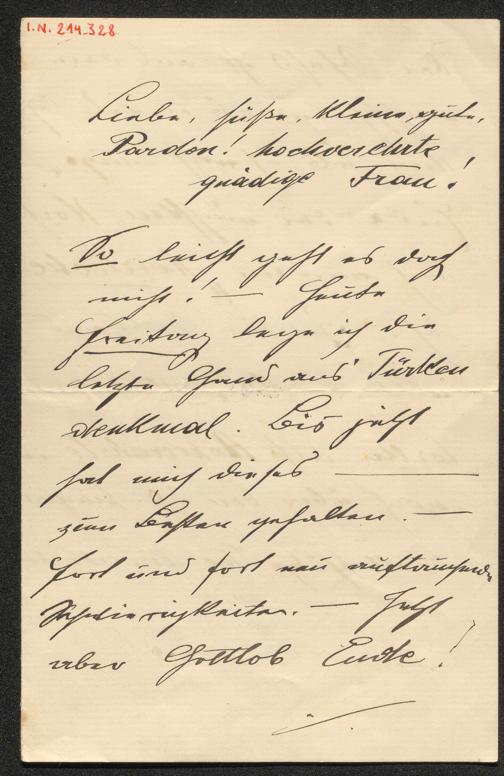 I.N. 214.328
Liebe, süße, kleine, gute,
Pardon! hochverehrte
gnädige Frau!
So leicht geht es doch
nicht! — Heute
Freitag lege ich die
letzte Hand ans Türken
denkmal. Bis jetzt
hat mich dieses —
zum Besten gehalten. —
fort und fort neu auftauchende
Schwierigkeiten. — Jetzt
aber Gottlob Ende!